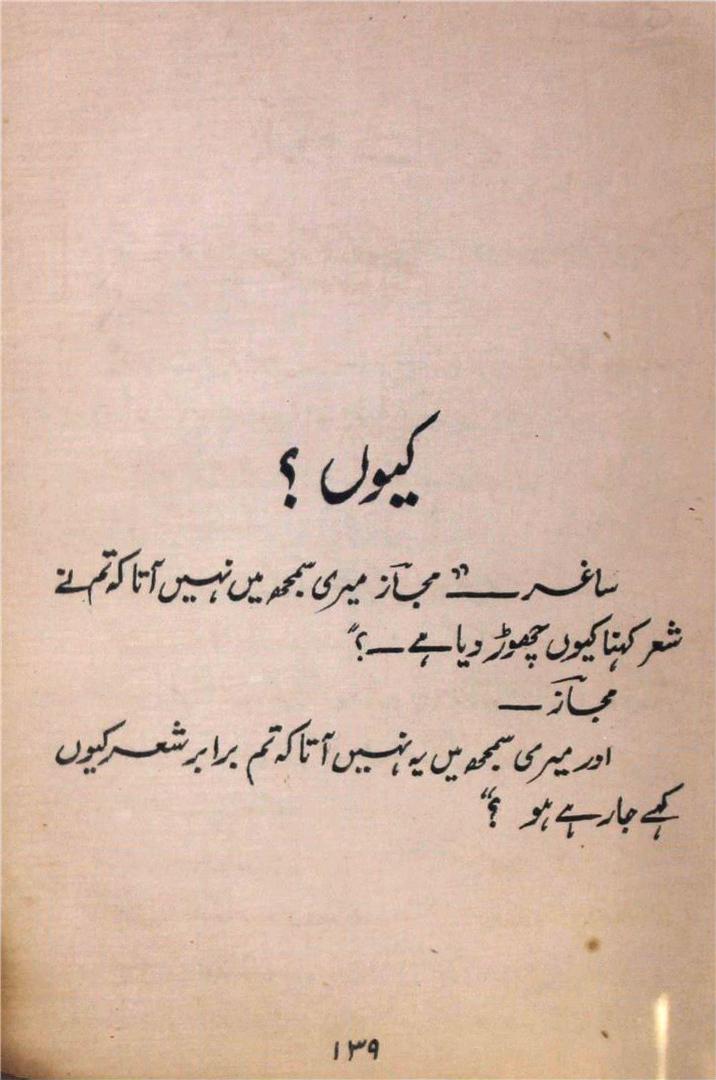 کیوں ؟
ساغر — “ مجازؔ میری سمجھ میں نہیں آتا کہ تم نے
شعر کہنا کیوں چھوڑ دیا ہے — ؟ ”
مجازؔ —
اور میری سمجھ میں یہ نہیں آتا کہ تم برابر شعر کیوں
کہے جا رہے ہو ؟ “
۱۳۹